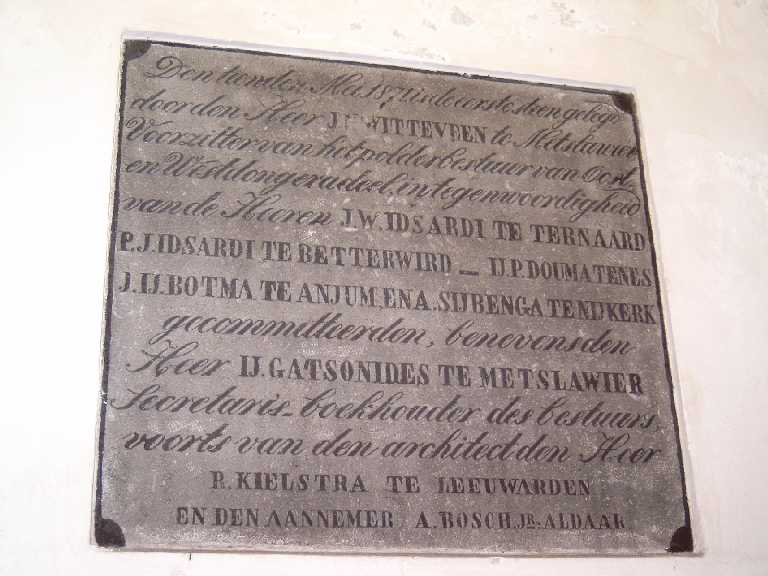 Den tienden Mei 1871 is de eerste steen gelegd
door den Heer J. WITTEVEEN te Metslawier
Voorzitter van het polderbestuur van Oost
en Westdongeradeel, in tegenwoordigheid
van de Heeren J.W. IDSARDI TE TERNAARD
P.J. IDSARDI TE BETTERWIRD _ IJ.P. DOUMA TE NES
J.IJ. BOTMA TE ANJUM, EN A. SIJBENGA TE NIJKERK
gecommitteerden, benevens den
Heer IJ. GATSONIDES TE METSLAWIER
Secretaris-boekhouder des bestuurs
voorts van den architect den Heer
R. KIELSTRA TE LEEUWARDEN
EN DEN AANNEMER A. BOSCH JR. ALDAAR